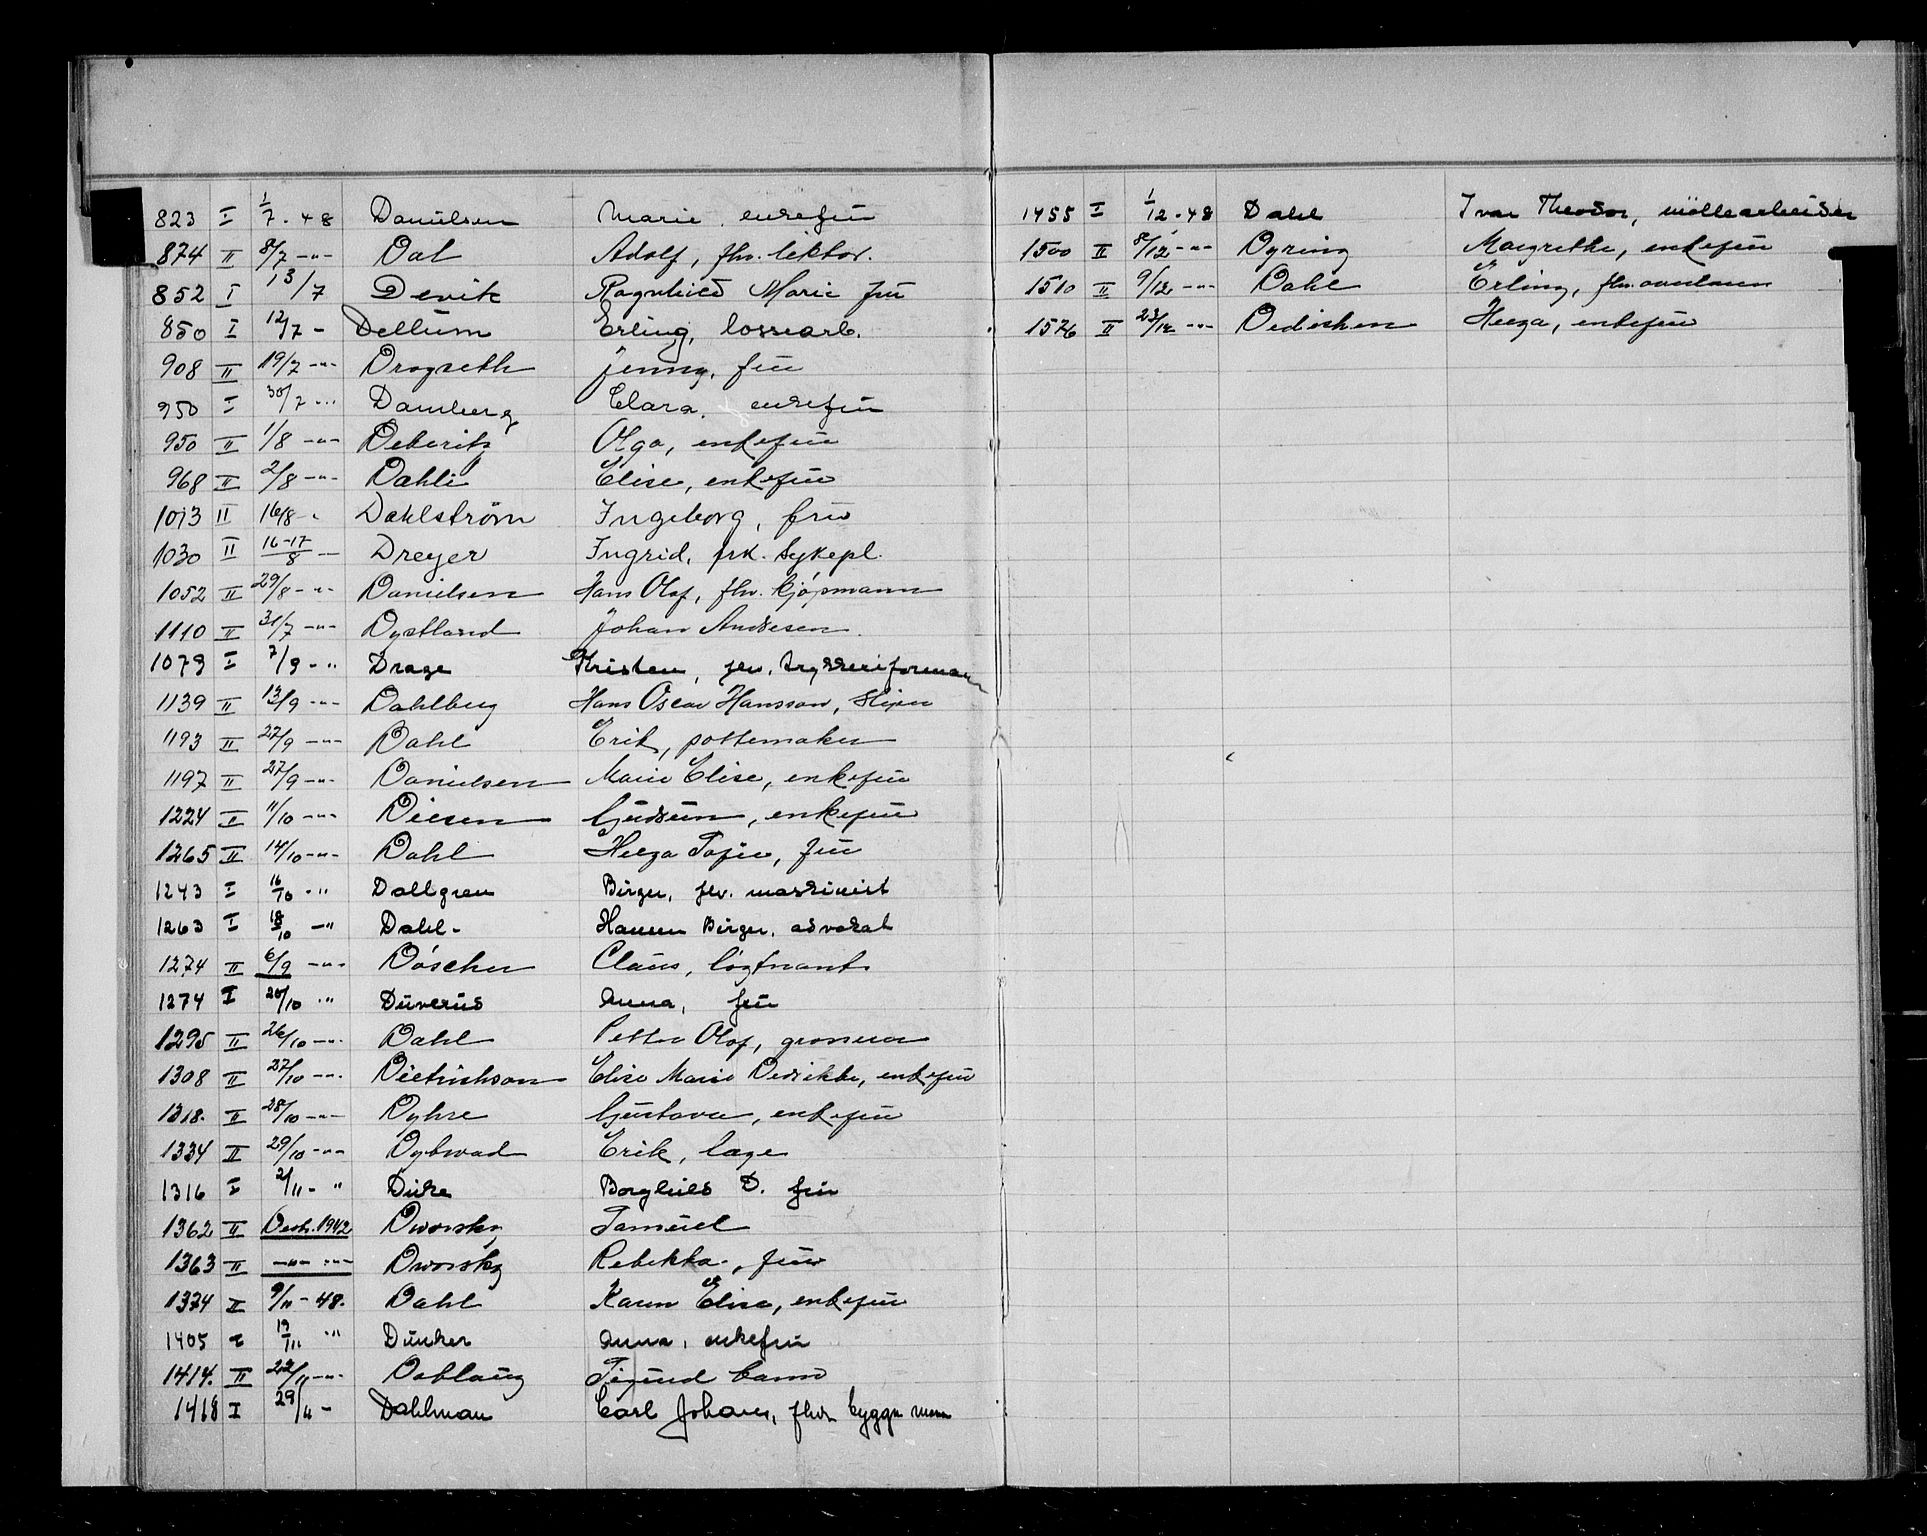 823 I 1/7 - 48 Danielsen Marie enkefru
874 II 8/7 -"- Dal Adolf, fhv. lektor.
852 I 13/7 Devik Ragnhild Marie fru
850 I 12/7 - Dellum Erling, lossearb.
908 II 19/7 -"- Dragseth Jenny, fru
950 I 30/7 -"- Damberg Clara, enkefru
950 II 1/8 -"- Deberitz Olga, enkefru
968 II 2/8 -"- Dahli Elise, enkefru
1013 II 16/8 - Dahlström Ingeborg, fru
1030 II 16-17/8 - Dreyer Ingrid, frk. sykepl.
1052 II 29/8 -"- Danielsen Hans Olaf, fhv. kjøpmann
1110 II 31/7 -"- Dystland Johan Andresen.
1079 I 7/9 -" Drage Kristen, fhv. bryggeriformann
1139 II 13/9 -"- Dahlberg Hans Oscar Hansson,
1193 II 27/9 -"- Dahl Erik, pottemaker
1197 II 27/9 -"- Danielsen Marie Elise, enkefru
1224 II 11/10 -"- Diesen Gudrun, enkefru
1265 II 14/10 -"- Dahl Helga Sofie, fru
1243 I 16/10 -" Dallgren Birger, fhv. maskinist
1263 I 18/10 -" Dahl- Hansen Birger, advokat
1274 II 6/9 -"- Döscher Claus, løytnant
1274 I 20/10 -" Duverus Anna, fru
1295 II 26/10 -"- Dahl Petter Olaf, grosserer
1308 II 27/10 -"- Dietrichson Elise Marie Dedrikke, enkefru
1318. II 28/10 -"- Dyhre Gustava, enkefru
1334 II 29/10 -"- Dybwad Erik, lege
1316 I 2/11 - " Dirke Borghild D. fru
1362 II Desbr. 1942 Dworsky Samuel
1363 II -"- -"- Dworsky Rebekka, fru
1374 II 9/11 - 48. Dahl Karen Elise, enkefru
1405 I 19/11 " Dunker Anna, enkefru
1414. II 22/11 -"- Dablaug Sigurd
1418 I 29/11 - Dahlman Carl Johan, fhv. bygg
1455 I 1/12 - 48 Dahl Ivar Theodor, möllearbeider
1500 II 8/12 -"- Dyring Margrethe, enkefru
1510 II 9/12 -"- Dahl Erling, fhv.
1526 II 23/12 -"- Dedichen Helga, enkefru